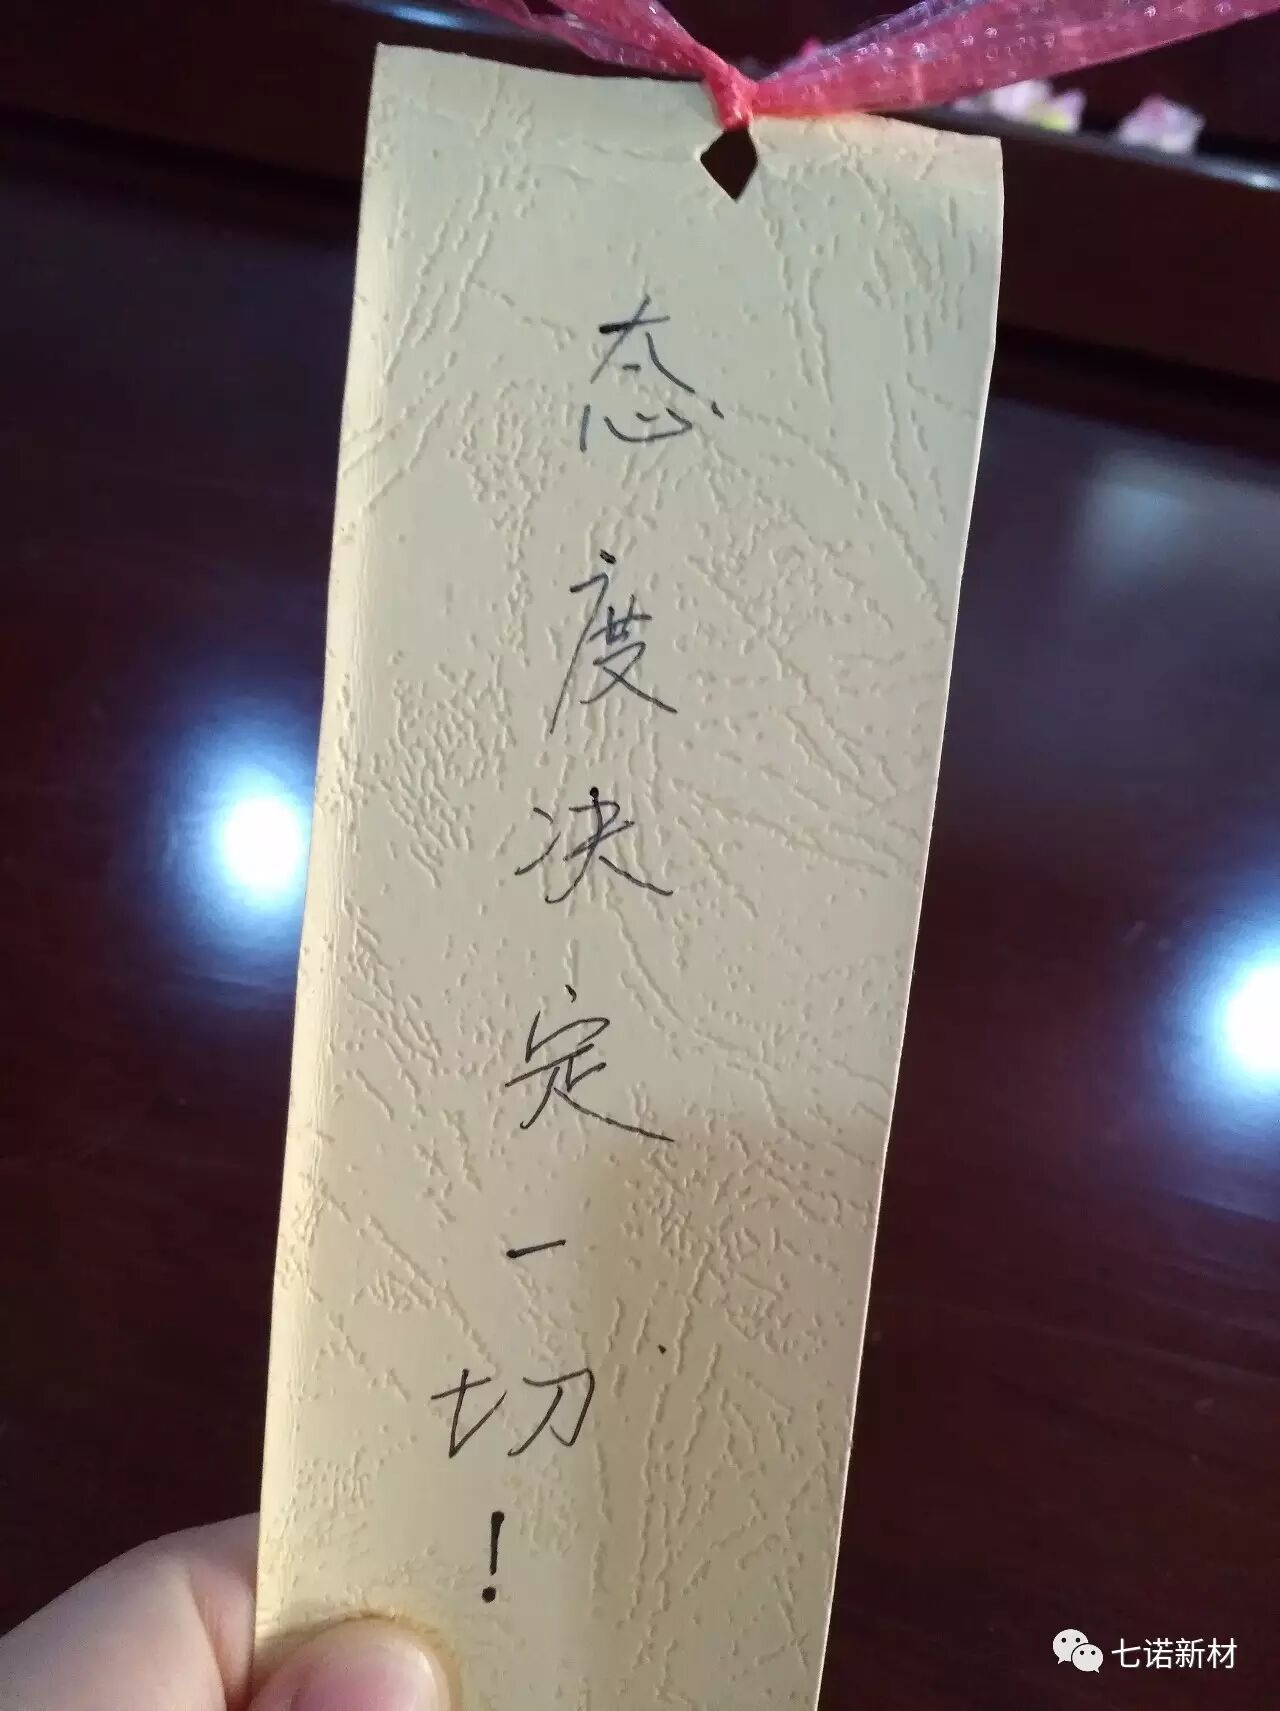 态度决定一切！
七诺新材